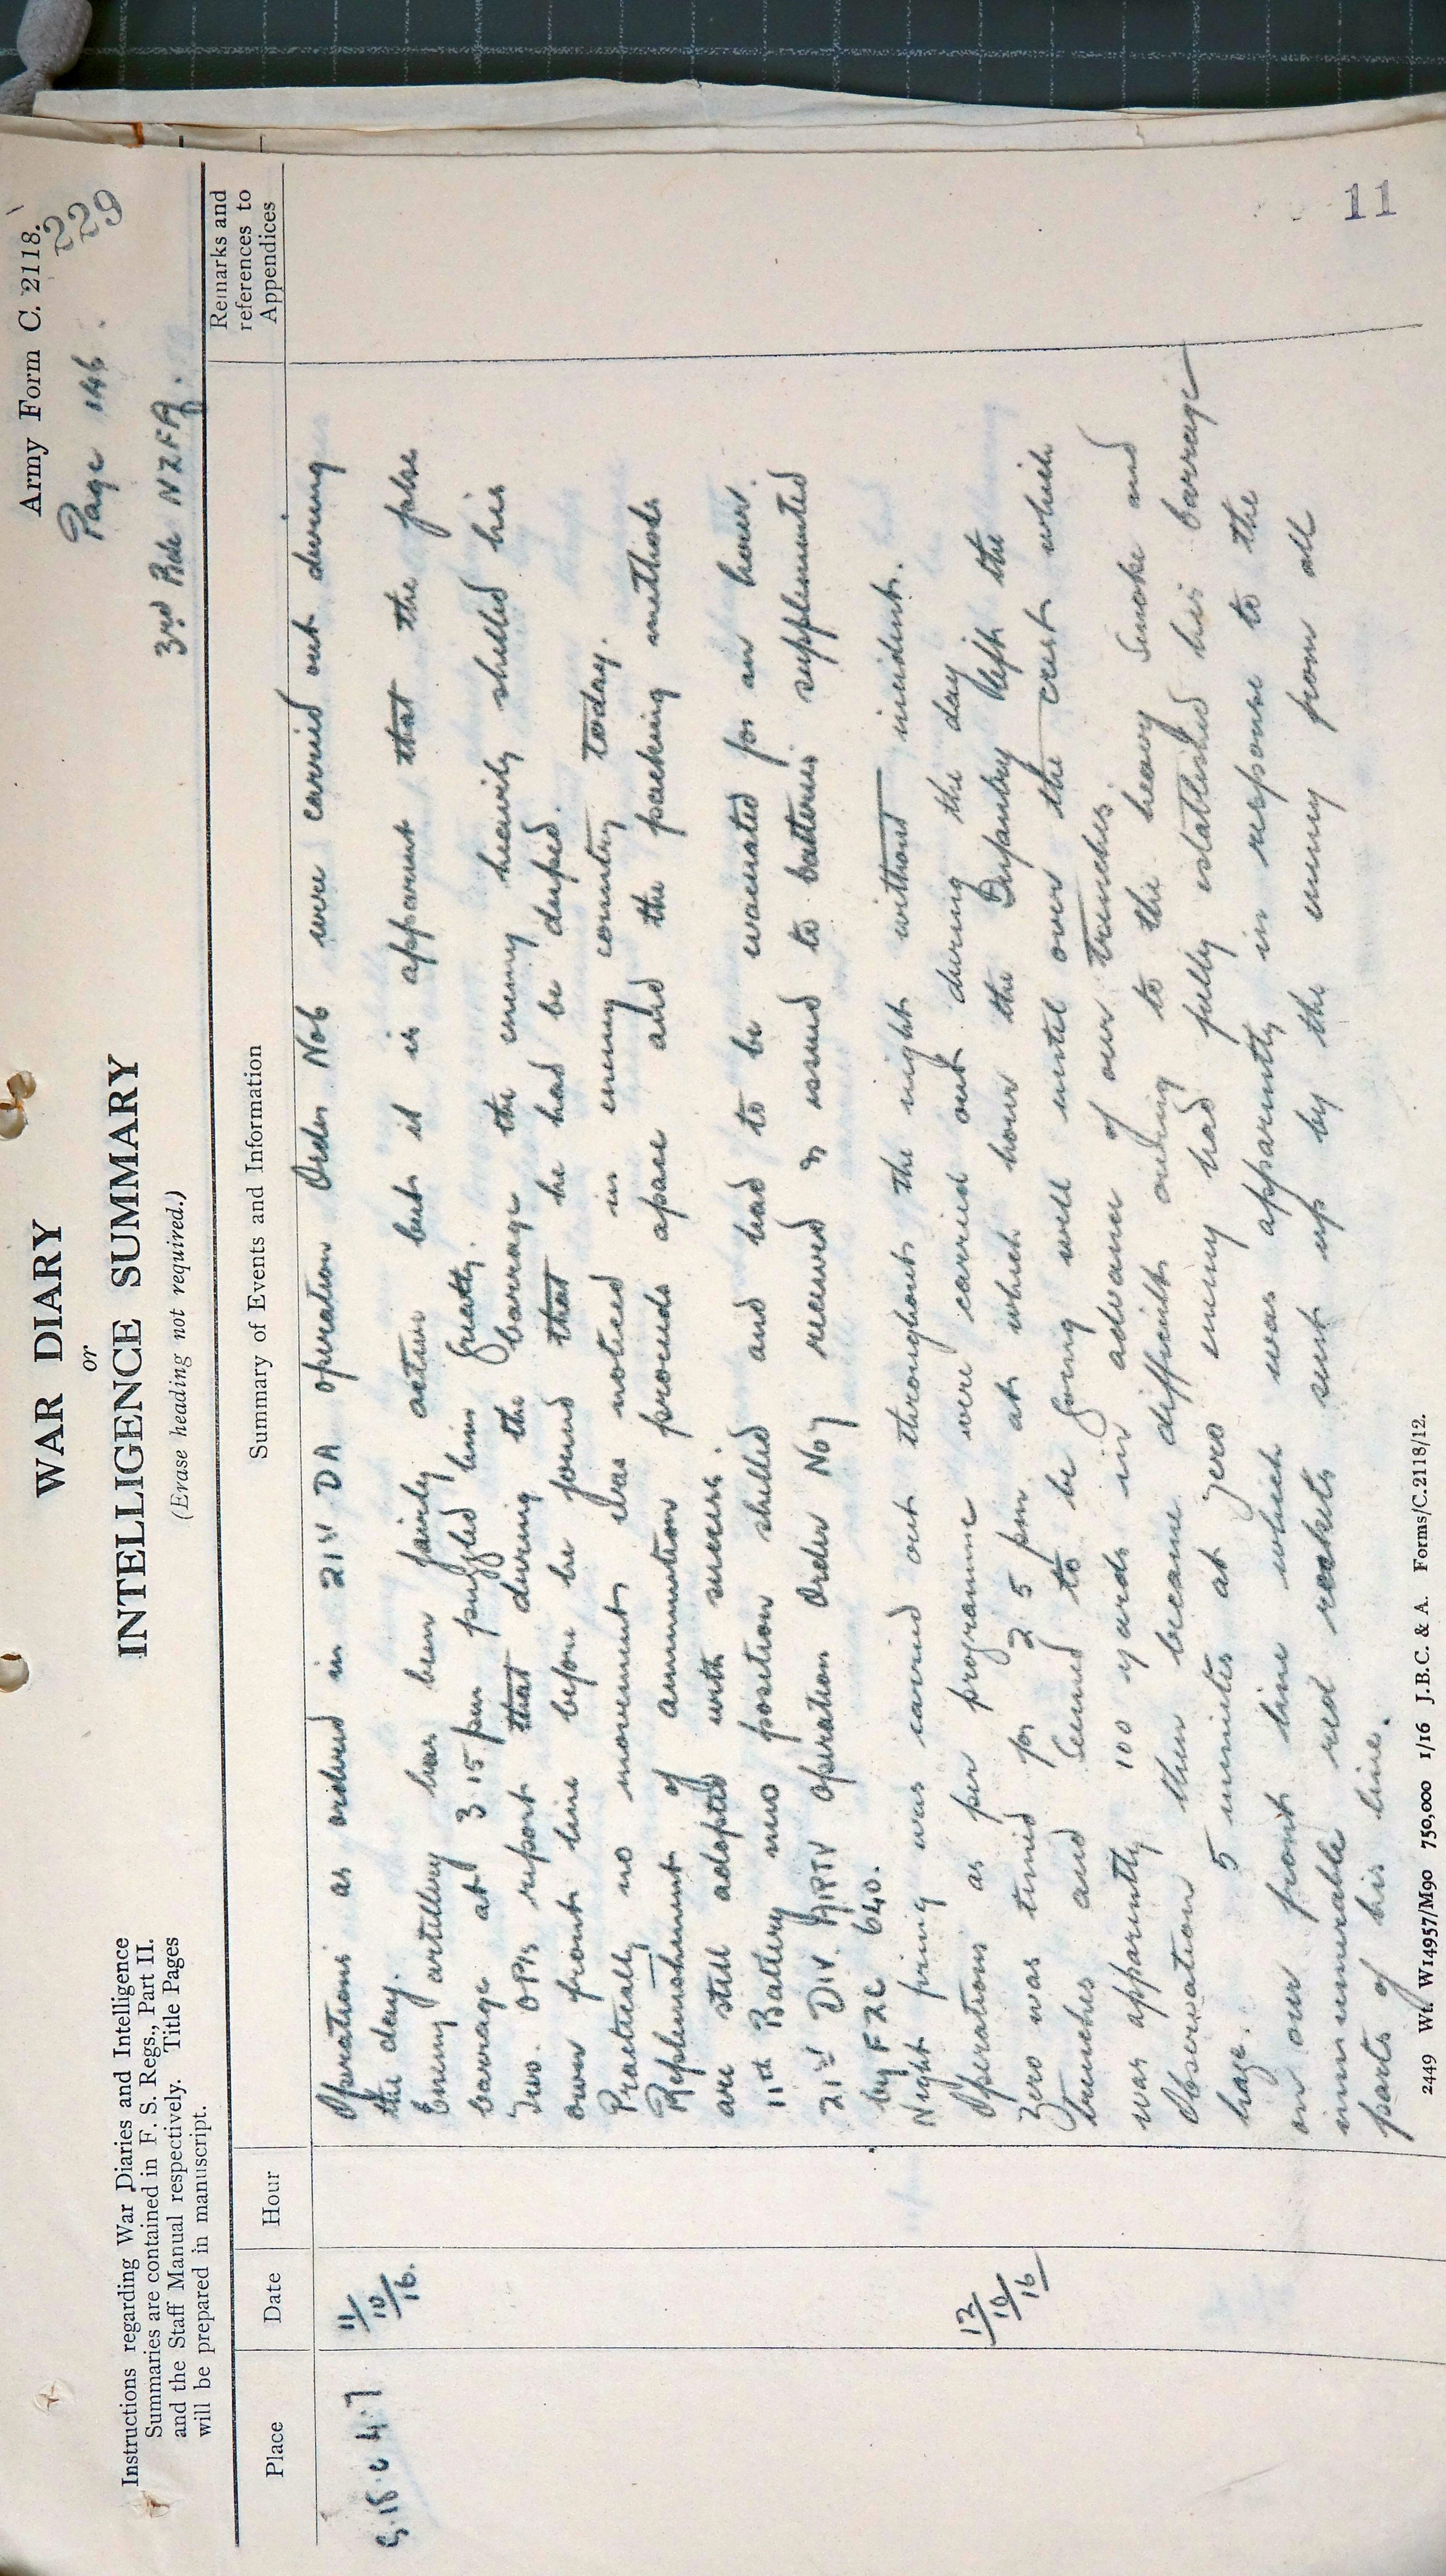 Army Form C. 2118.
229
WAR DIARY
or
INTELLIGENCE SUMMARY
(Erase heading not required.)
Page 146.
3rd Bde NZFA.
Instructions regarding War Diaries and Intelligence
Summaries are contained in F. S. Regs., Part II.
and the Staff Manual respectively. Title Pages
will be prepared in manuscript.
Place
Date
Hour
Summary of Events and Information
Remarks and
references to
Appendices
S.15.c 4.7
11/10/16.
Operations as ordered in 21 DIV DA operation Order No6 were carried out during
the day.
Enemy artillery has been fairly active but it is apparent that the false
barrage at 3.15 pm puzzled him greatly.
Two OPs report that during the barrage the enemy heavily shelled his
own front line before he found that he had be duped.
Practically no movement was noticed in enemy country today.
Replenishment of ammunition proceeds apace and the packing methods
are still adopted with success.
11th Battery position shelled and had to be vacated for an hour.
21st DIV ARTY operation Order No7 received & issued to batteries supplemented
by FZC 640.
Night firing was carried out throughout the night without incident.
12/10/16
Operations as per programme were carried out during the day
Zero was timed for 2 5 pm at which hour the Infantry left the
trenches and seemed to be going well until over the crest which
was apparently 100 yards in advance of our trenches.
Observation then became difficult owing to the heavy smoke and
haze. 5 minutes at zero enemy had fully established his barrage
on our front line which was apparently in response to the
innumerable red rockets sent up by the enemy from all
parts of his line.
2449 Wt. W14957/M90 750,000 1/16 J.B.C. & A. Forms/C.2118/12.
11